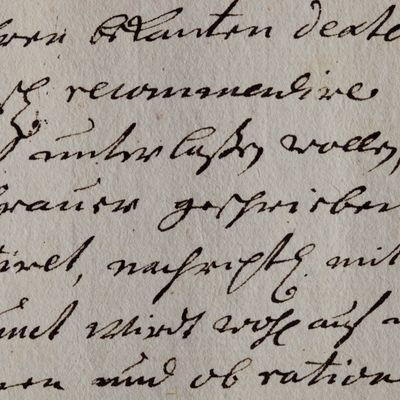 ren bekanten dexte
recommendire
unterlaßen wollen,
brauer geschrieben
iret, nachricht mit
wirdt wohl auf
nen und ob ration